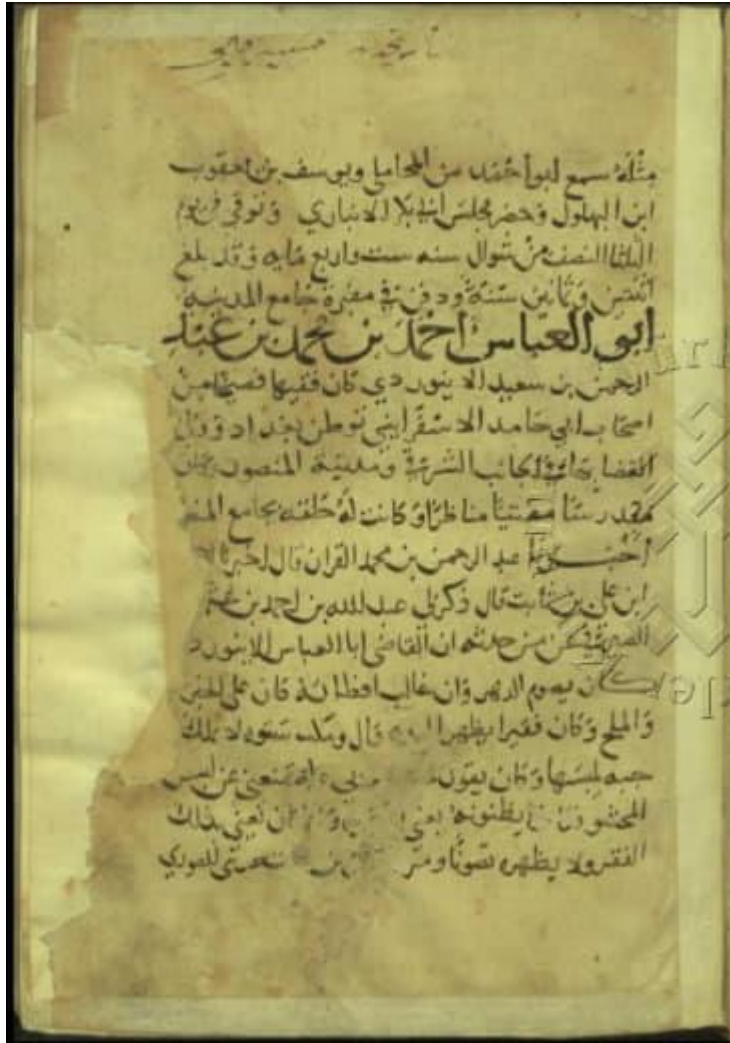 مثله سمع ابو احمد من المحاملي ويوسف بن يعقوب
ابن البهلول وحضر مجلس ابي بكر الانباري وتوفي في يوم
الثلثا النصف من شوال سنه ست واربع مايه وقد بلغ
اثنتين وثمانين سنة ودفن في مقبرة جامع المدينه
ابو العباس احمد بن محمد بن عبد
الرحمن بن سعيد الابيوردي كان فقيها فصيحا من
اصحاب ابي حامد الاسفرايني توطن بغداد وولي
القضا بها في الجانب الشرقي ومدينة المنصور وكان
مدرسا مفتيا مناظرا وكانت له حلقه بجامع المنصور
اخبرنا عبد الرحمن بن محمد القزاز قال اخبرنا
ابن علي بن ثابت قال ذكر لي عبد الله بن احمد بن
الصيرفي عن من حدثه ان القاضي ابا العباس الابيورد
كان يصوم الدهر وان غالب افطاره كان على الخبز
والملح وكان فقيرا يظهر قال ومكث شتوه لا يملك
جبه يلبسها وكان يقول تمنعني عن لبس
المحشو يظنونه يعني يعني بذلك
الفقر ولا يظهره تصونا ومر بن للصوري